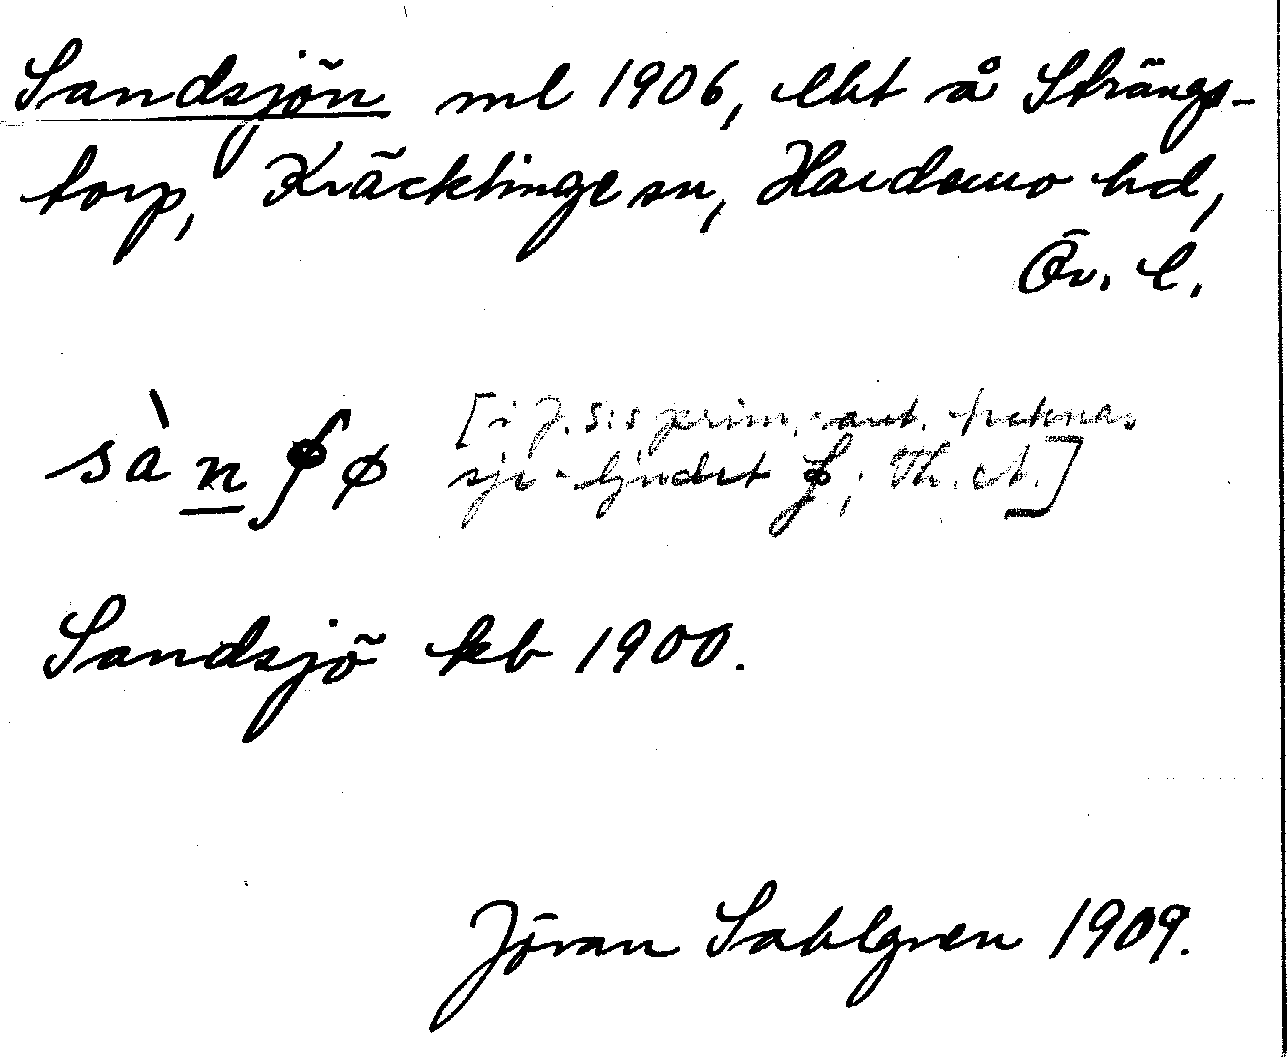 Sandsjön ml 1906, lht å Strängs-
torp, Kräcklinge sn, Hardemo hd,
Ör. l.
sàn ʃø [i J. S:s prim. ant.
sje-ljudet ʃ; Th. A.]
Sandsjö kb 1900.
Jöran Sahlgren 1909.